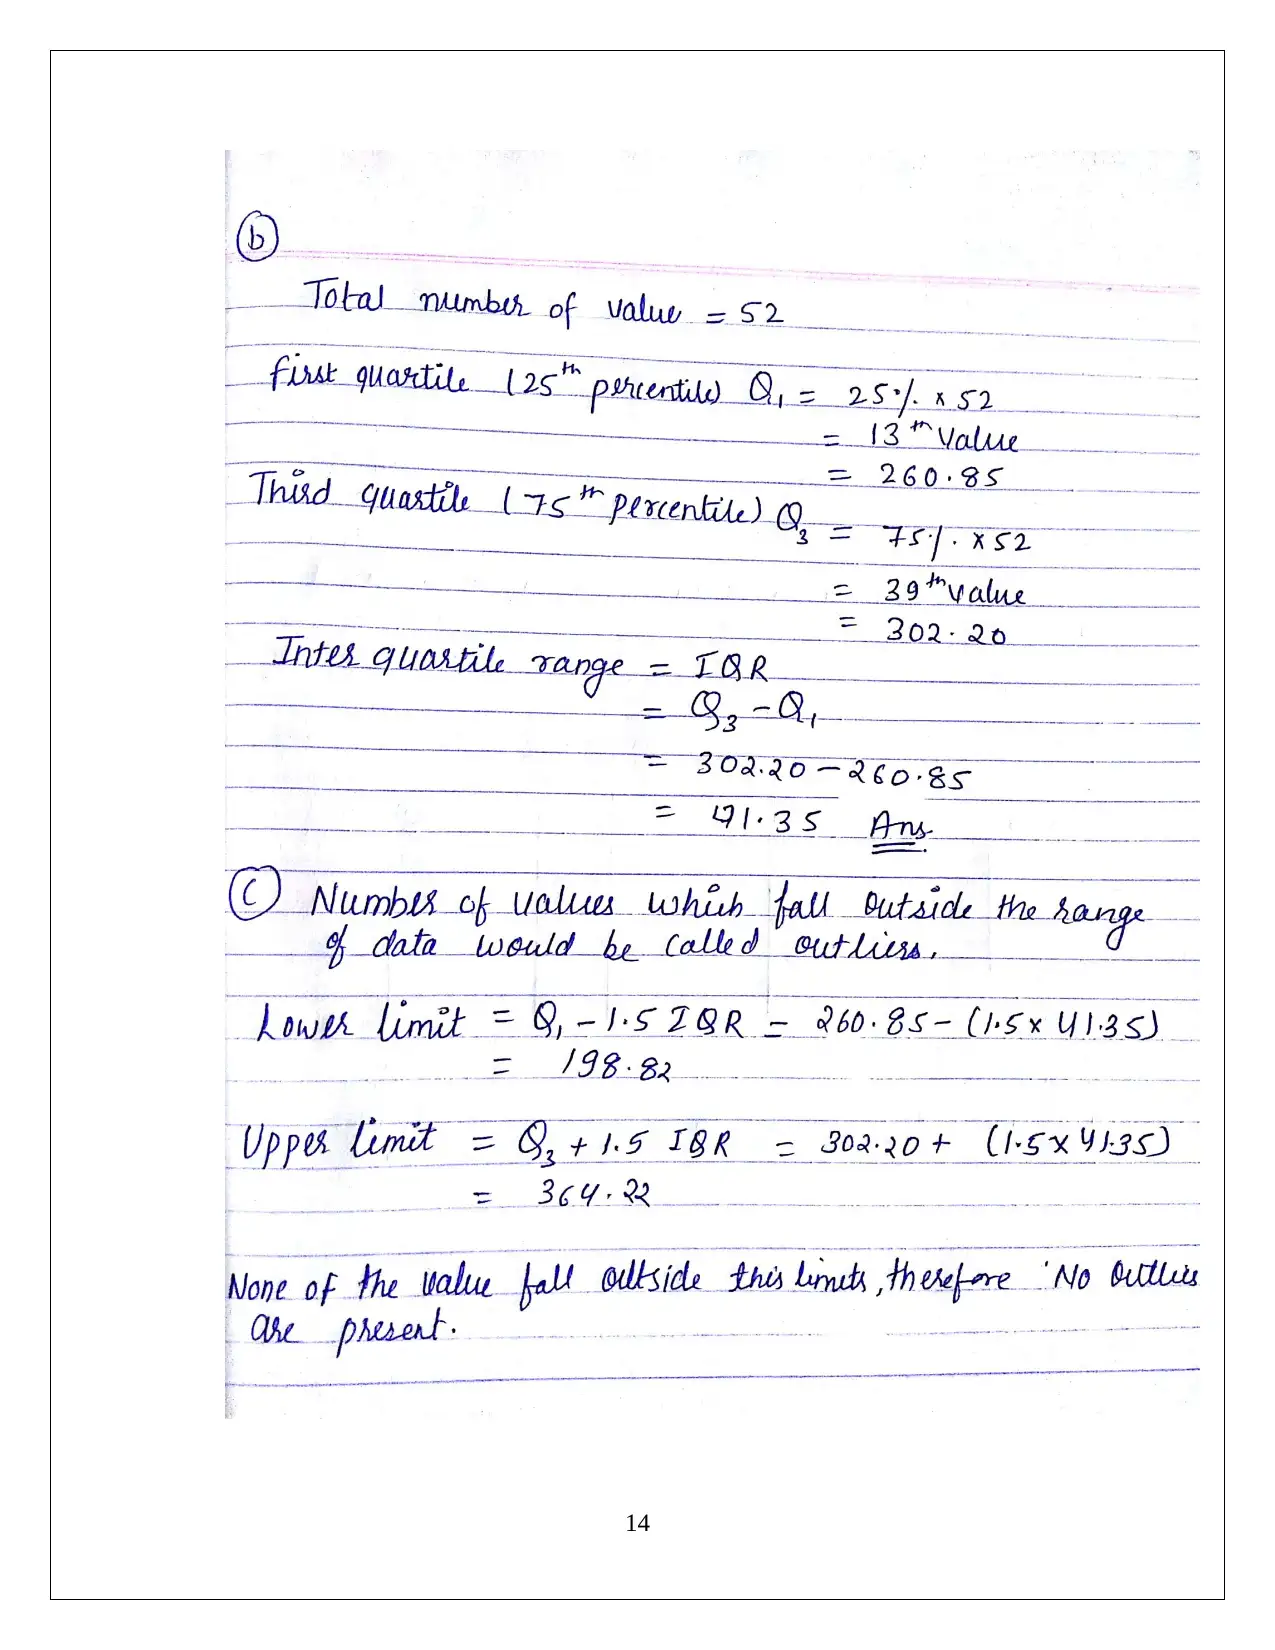 b
Total number of value = 52
first quartile (25th percentile) Q1 = 25% x 52
= 13th Value
= 260.85
Third quartile (75th percentile) Q3 = 75% x 52
= 39th value
= 302.20
Inter quartile range = IQR
= Q3 - Q1
= 302.20 - 260.85
= 41.35 Ans
c Number of values which fall outside the range
of data would be called outliers.
Lower limit = Q1 - 1.5 IQR = 260.85 - (1.5 x 41.35)
= 198.82
Upper limit = Q3 + 1.5 IQR = 302.20 + (1.5 x 41.35)
= 364.22
None of the value fall outside this limits, therefore 'No Outlies
are present.
14